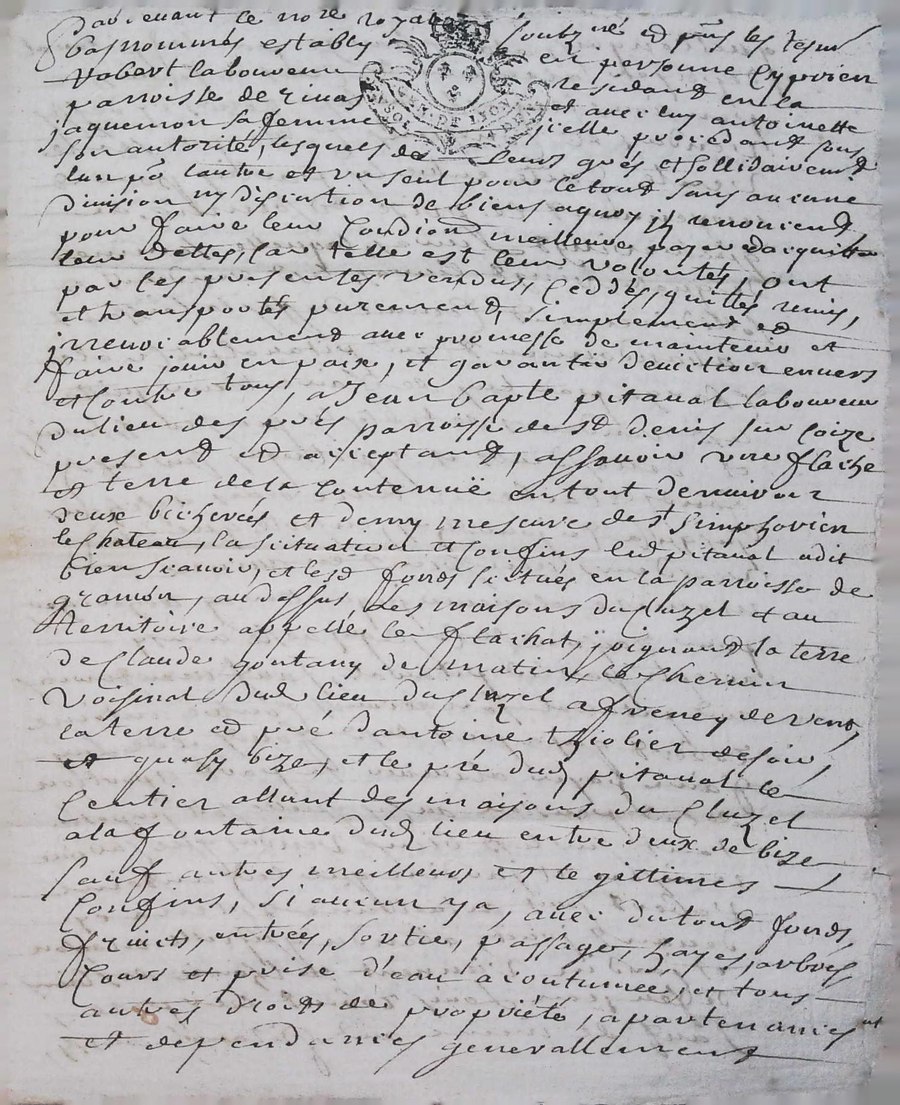 Pardevant le no.re royal soubz.né et p.nts les tesm.
bas nommés estably en personne Cyprien
Robert laboureur residand en la
parroisse de rivas et avec luy antoinette
jaquemon sa femme jcelle procedand sous
son autorité, lesquels de leurs grés et sollidairem.t
lun p.r lautre et un seul pour le tout sans aucune
division ny discution de biens aquoy jls renoncend
pour faire leur Condion meilleure payer et acquitter
leur dettes, Car telle est leur volontés, ont
par les presentes vendus, Ceddés, quittés remis,
et transportés purement, simplement et
jrrevocablement avec promesse de maintenir et
faire jouir en paix, et garantir deviction envers
et Contre tous, a Jean bap.te pitaval laboureur
du lieu des prés parroisse de S.t denis sur Coize
present et acceptand, assavoir une flache
et terre de la Contenüe en tout denviron
deux bicherées et demy mesure de S.t Simphorien
le Chateau, la scituation et Confins led. pitaval a dit
bien scavoir, et lesd. fonds scitués en la parroisse de
gramon, au dessus des maisons du Cluzel et au
territoire appellé le flachat, joignand la terre
de Claude goutany de matin, le Chemin
Voisinal dud. lieu du Cluzel a freney de vent,
la terre et pré dantoine thiolier de soir,
et quasy bize, et le pré dud. pitaval le
Centier allant des maisons du Cluzel
a la fontaine dud. lieu entre deux de bize
sauf autres meilleurs et legittimes
Confins, si aucun ya, avec du tout fonds,
fruicts, entrées, sortie, passage, hayes, arbres
Cours et prise d'eau acoutumée, et tous
autres droits de propriété, apartenances
et dependances generallement